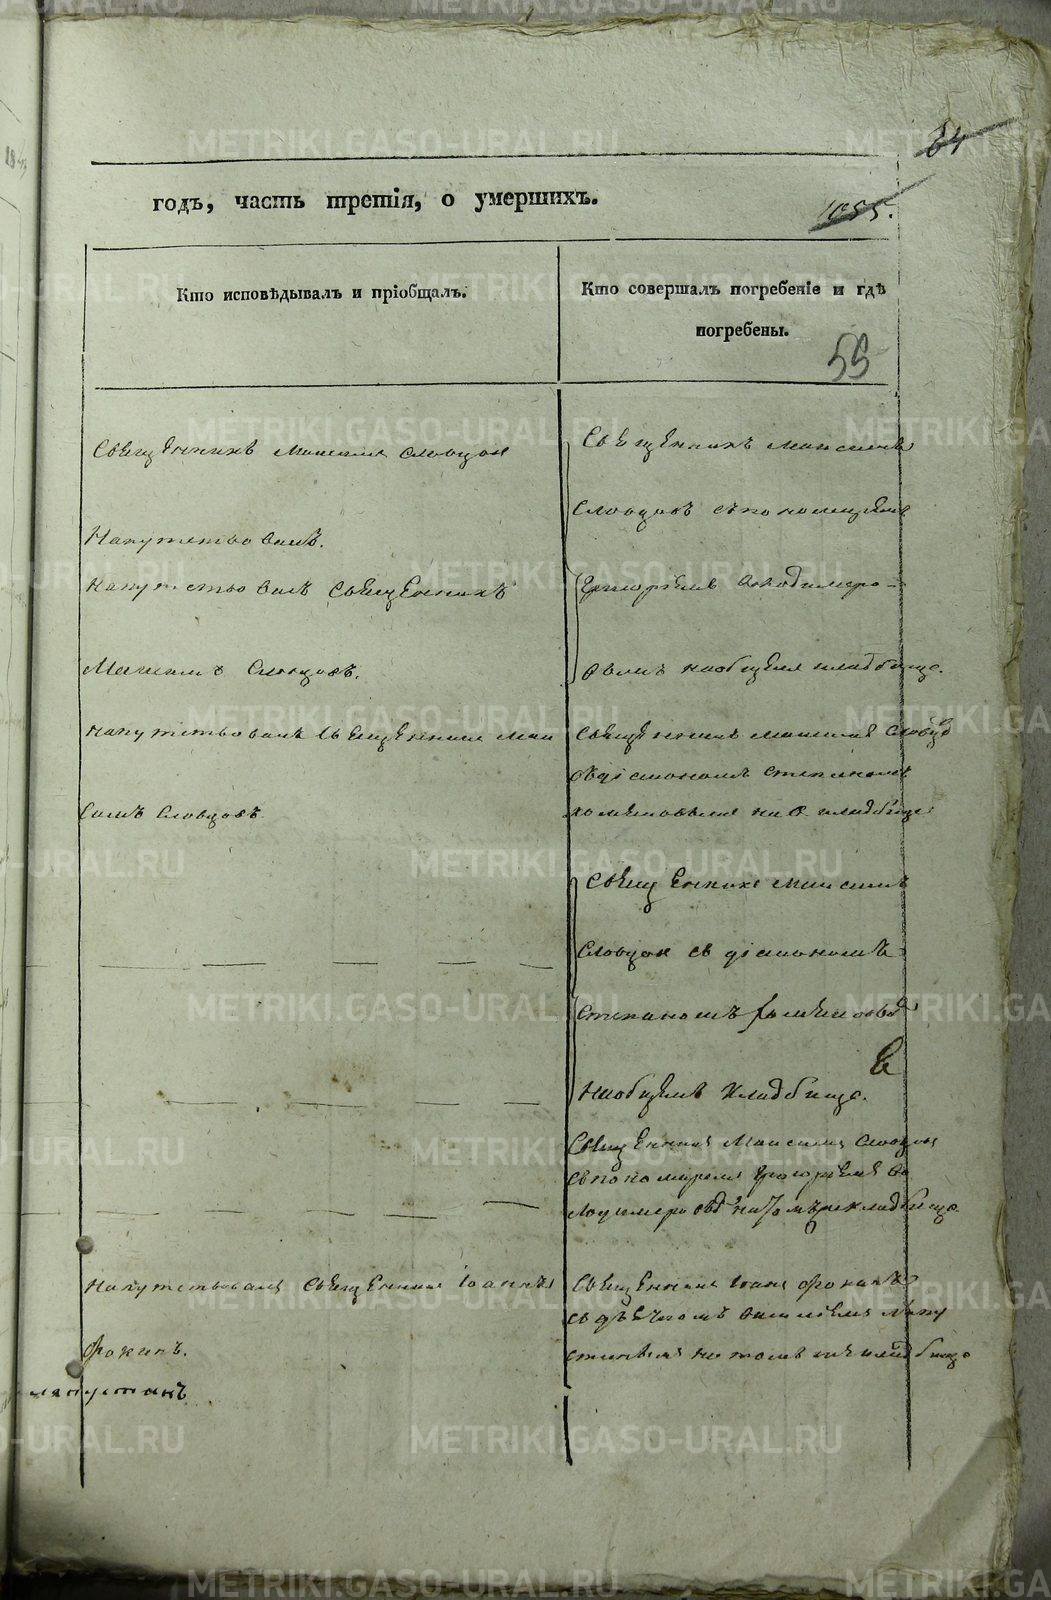 84
годъ, часть третія, о умершихъ.
1055.
Кто исповѣдывалъ и пріобщалъ.
Кто совершалъ погребеніе и гдѣ
погребены.
59
Священникъ Максимъ Словцов
Напутствовалъ.
Напутствовалъ Священникъ
Максимъ Словцовъ.
Напутствовалъ Священникъ Мак
симъ Словцовъ
Напутствовалъ Священникъ Іоаннъ
Фокинъ.
Лапустинъ
Священникъ Максимъ
Словцовъ съ пономаремъ
Григоріемъ Володимеро-
вымъ на общемъ кладбище.
Священникъ Максимъ Словцов
съ діакономъ Стефаномъ
на о. кладбище
Священникъ Максимъ
Словцов съ діакономъ
Степаномъ
На общемъ кладбище.
Священник Максим Словцов
съ пономарем Григорiем Во
лодимеровы на томъ же кладбище.
Священник Иоан Фокинъ
съ дьячкомъ Василіемъ Лапу
стинымъ на томъ же кладбище
METRIKI.GASO-URAL.RU